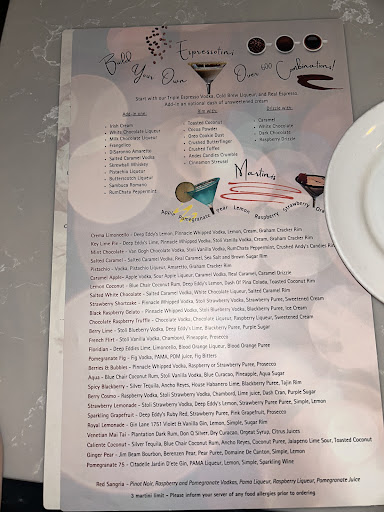 Build Your Own Espressotini
Over 500 Combinations!
Start with our Triple Espresso Vodka, Cold Brew Liqueur, and Real Espresso
Add-in an optional dash of unsweetened cream
Add-in one:
• Irish Cream
• White Chocolate Liqueur
• Milk Chocolate Liqueur
• Frangelico
• DiSaronno Amaretto
• Salted Caramel Vodka
• Skrewball Whiskey
• Pistachio Liqueur
• Butterscotch Liqueur
• Sambuca Romano
• RumChata Peppermint
Rim with:
• Toasted Coconut
• Cocoa Powder
• Oreo Cookie Dust
• Crushed Butterfinger
• Crushed Toffee
• Andes Candies Crumble
• Cinnamon Streusel
Drizzle with:
• Caramel
• White Chocolate
• Dark Chocolate
• Raspberry Drizzle
Martinis
Pomegranate Pear Lemon Raspberry Strawberry
Crema Limoncello - Deep Eddy's Lemon, Pinnacle Whipped Vodka, Lemon, Cream, Graham Cracker Rim
Key Lime Pie - Deep Eddy's Lime, Pinnacle Whipped Vodka, Stoli Vanilla Vodka, Cream, Graham Cracker Rim
Mint Chocolate - Van Gogh Chocolate Vodka, Stoli Vanilla Vodka, RumChata Peppermint, Crushed Andy's Candies Rim
Salted Caramel - Salted Caramel Vodka, Real Caramel, Sea Salt and Brown Sugar Rim
Pistachio - Vodka, Pistachio Liqueur, Amaretto, Graham Cracker Rim
Caramel Apple - Apple Vodka, Sour Apple Liqueur, Caramel Vodka, Real Caramel, Caramel Drizzle
Lemon Coconut - Blue Chair Coconut Rum, Deep Eddy's Lemon, Dash Of Pina Colada, Toasted Coconut Rim
Salted White Chocolate - Salted Caramel Vodka, White Chocolate Liqueur, Salted Caramel Rim
Strawberry Shortcake - Pinnacle Whipped Vodka, Stoli Strawberry Vodka, Strawberry Puree, Sweetened Cream
Black Raspberry Gelato - Pinnacle Whipped Vodka, Stoli BluBerry Vodka, Blackberry Puree, Ice Cream
Chocolate Raspberry Truffle - Chocolate Vodka, Chocolate Liqueur, Raspberry Liqueur, Sweetened Cream
Berry Lime - Stoli Blueberry Vodka, Deep Eddy's Lime, Blackberry Puree, Purple Sugar
French Flirt - Stoli Vanilla Vodka, Chambord, Pineapple, Prosecco
Floridian - Deep Eddies Lime, Limoncello, Blood Orange Liqueur, Blood Orange Puree
Pomegranate Fig - Fig Vodka, PAMA, POM juice, Fig Bitters
Berries & Bubbles - Pinnacle Whipped Vodka, Raspberry or Strawberry Puree, Prosecco
Aqua - Blue Chair Coconut Rum, Stoli Vanilla Vodka, Blue Curacao, Pineapple, Aqua Sugar
Spicy Blackberry - Silver Tequila, Ancho Reyes, House Habanero Lime, Blackberry Puree, Tajin Rim
Berry Cosmo - Raspberry Vodka, Stoli Strawberry Vodka, Chambord, Lime juice, Dash Cran, Purple Sugar
Strawberry Lemonade - Stoli Strawberry Vodka, Deep Eddy's Lemon, Strawberry Puree Puree, Simple, Lemon
Sparkling Grapefruit - Deep Eddy's Ruby Red, Strawberry Puree, Pink Grapefruit, Prosecco
Royal Lemonade - Gin Lane 1751 Violet & Vanilla Gin, Lemon, Simple, Sugar Rim
Venetian Mai Tai - Plantation Dark Rum, Don Q Silver, Dry Curacao, Orgeat Syrup, Citrus Juices
Caliente Coconut - Silver Tequila, Blue Chair Coconut Rum, Ancho Reyes, Coconut Puree, Jalapeno Lime Sour, Toasted Coconut
Ginger Pear - Jim Beam Bourbon, Berenzen Pear, Pear Puree, Domaine De Canton, Simple, Lemon
Pomegranate 75 - Citadelle Jardin D'ete Gin, PAMA Liqueur, Lemon, Simple, Sparkling Wine
Red Sangria - Pinot Noir, Raspberry and Pomegranate Vodkas, Pama Liqueur, Raspberry Liqueur, Pomegranate Juice
3 martini limit - Please inform your server of any food allergies prior to ordering